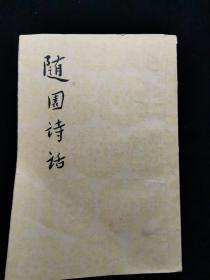 随园诗话